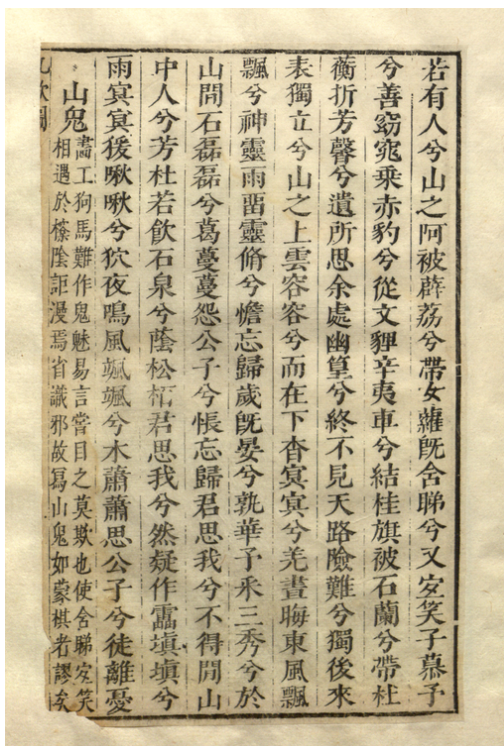 若有人兮山之阿被薜荔兮帶女蘿旣含睇兮又宐笑子慕予
兮善窈窕乗赤豹兮從文貍辛夷車兮結桂旗被石蘭兮帶杜
蘅折芳馨兮遺所思余處幽篁兮終不見天路險難兮獨後來
表獨立兮山之上雲容容兮而在下杳冥冥兮羌晝晦東風飄
飄兮神靈雨畱靈脩兮憺忘歸歲旣晏兮孰華予采三秀兮於
山閒石磊磊兮葛蔓蔓怨公子兮悵忘歸君思我兮不得閒山
中人兮芳杜若飲石泉兮蔭松栢君思我兮然疑作靁塡塡兮
雨冥冥猨啾啾兮狖夜鳴風颯颯兮木蕭蕭思公子兮徒離憂
山鬼
畵工狗馬難作鬼魅易言嘗目之莫欺也使含睇宐笑
相遇於橑陰詎漫焉省識邪故寫山鬼如蒙棋者謬矣
九歌圖